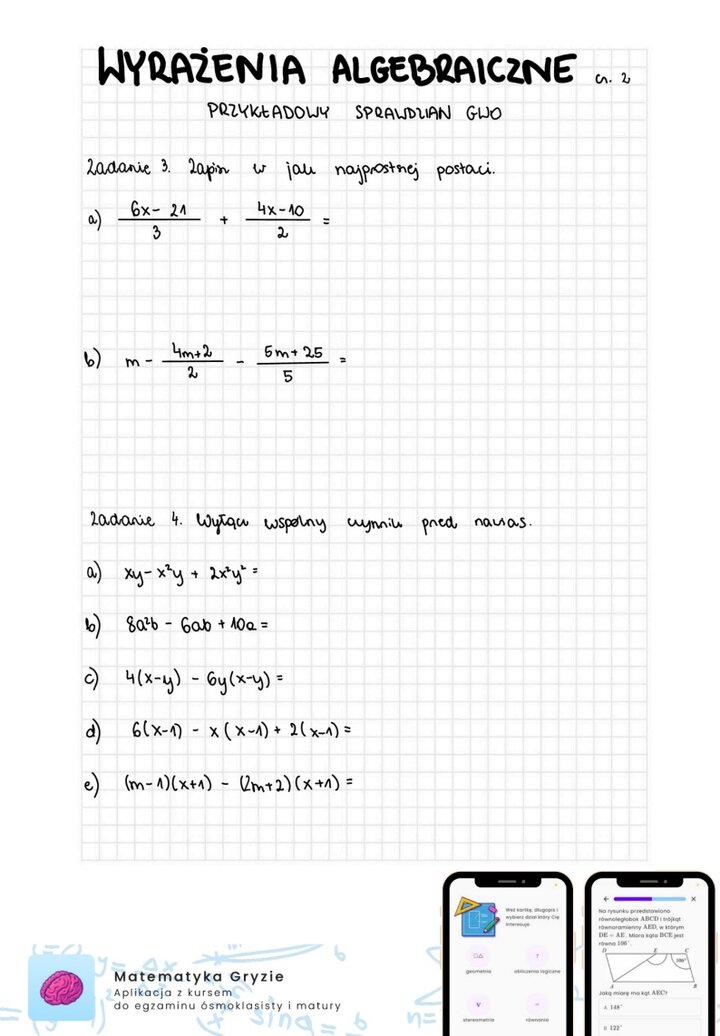 WYRAŻENIA ALGEBRAICZNE cz. 2
PRZYKŁADOWY SPRAWDZIAN GWO
Zadanie 3. Zapisz w jak najprostszej postaci.
a) \frac{6x-21}{3} + \frac{4x-10}{2} =
b) m - \frac{4m+2}{2} - \frac{5m+25}{5} =
Zadanie 4. Wyłącz wspólny czynnik przed nawias.
a) xy - x²y + 2x²y² =
b) 8a²b - 6ab + 10a =
c) 4(x-y) - 6y(x-y) =
d) 6(x-1) - x(x-1) + 2(x-1) =
e) (m-1)(x+1) - (2m+2)(x+1) =
Matematyka Gryzie
Aplikacja z kursem
do egzaminu ósmoklasisty i matury
Weź kartkę, długopis i
wybierz dział który Cię
interesuje
geometria
obliczenia logiczne
stereometria
równania
Na rysunku przedstawiono
równoległobok ABCD i trójkąt
równoramienny AED, w którym
DE = AE. Miara kąta BCE jest
równa 106°.
D E C
106°
A B
Jaką miarę ma kąt AEC?
A. 148°
B. 122°